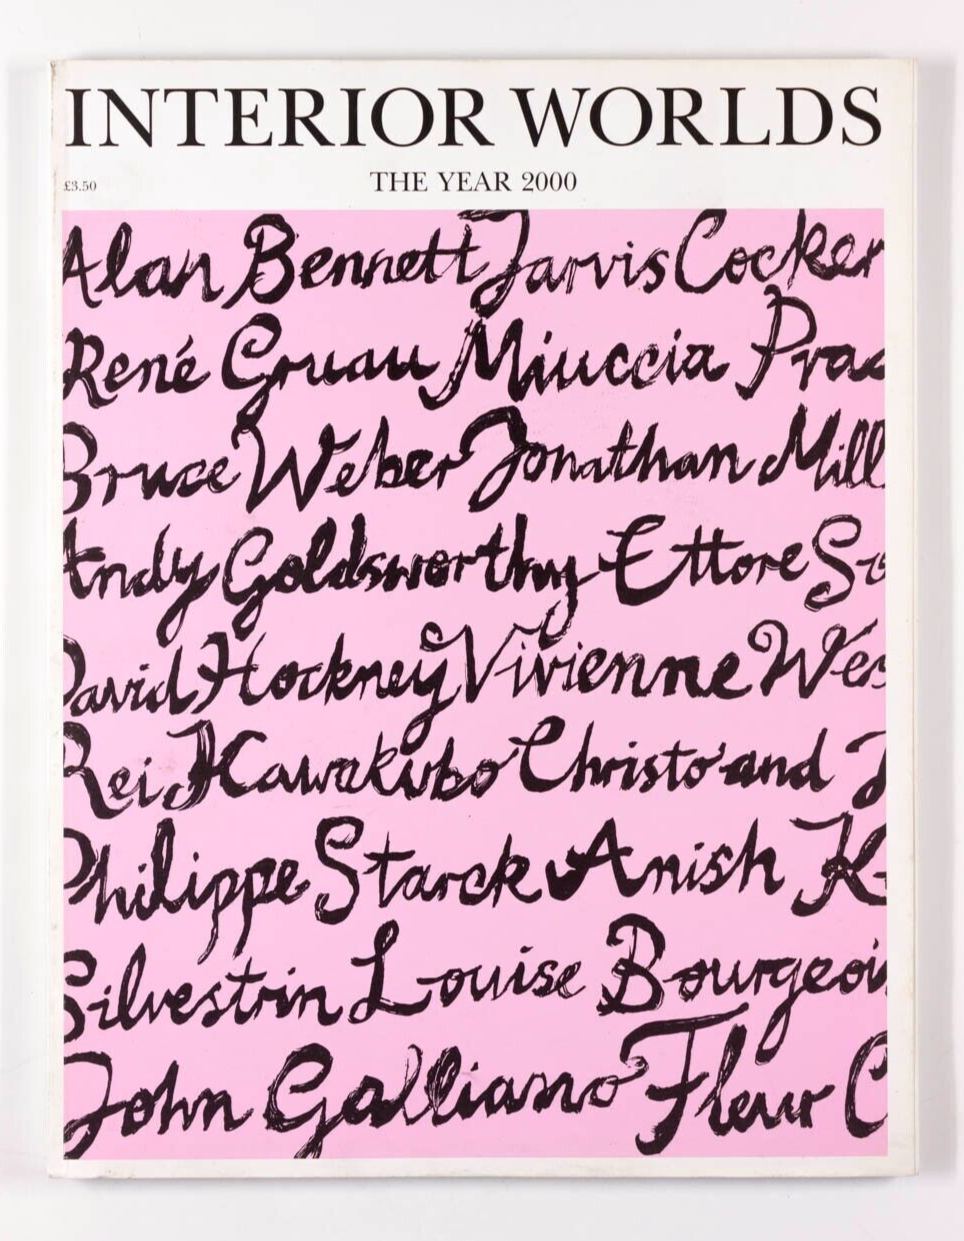 INTERIOR WORLDS
£3.50
THE YEAR 2000
Alan Bennett Jarvis Cocker
René Gruau Miuccia Prad
Bruce Weber Jonathan Mill
Andy Goldsworthy Ettore So
David Hockney Vivienne Wes
Rei Kawakubo Christo and J
Philippe Starck Anish K
Silvestrin Louise Bourgeois
John Galliano Fleur C